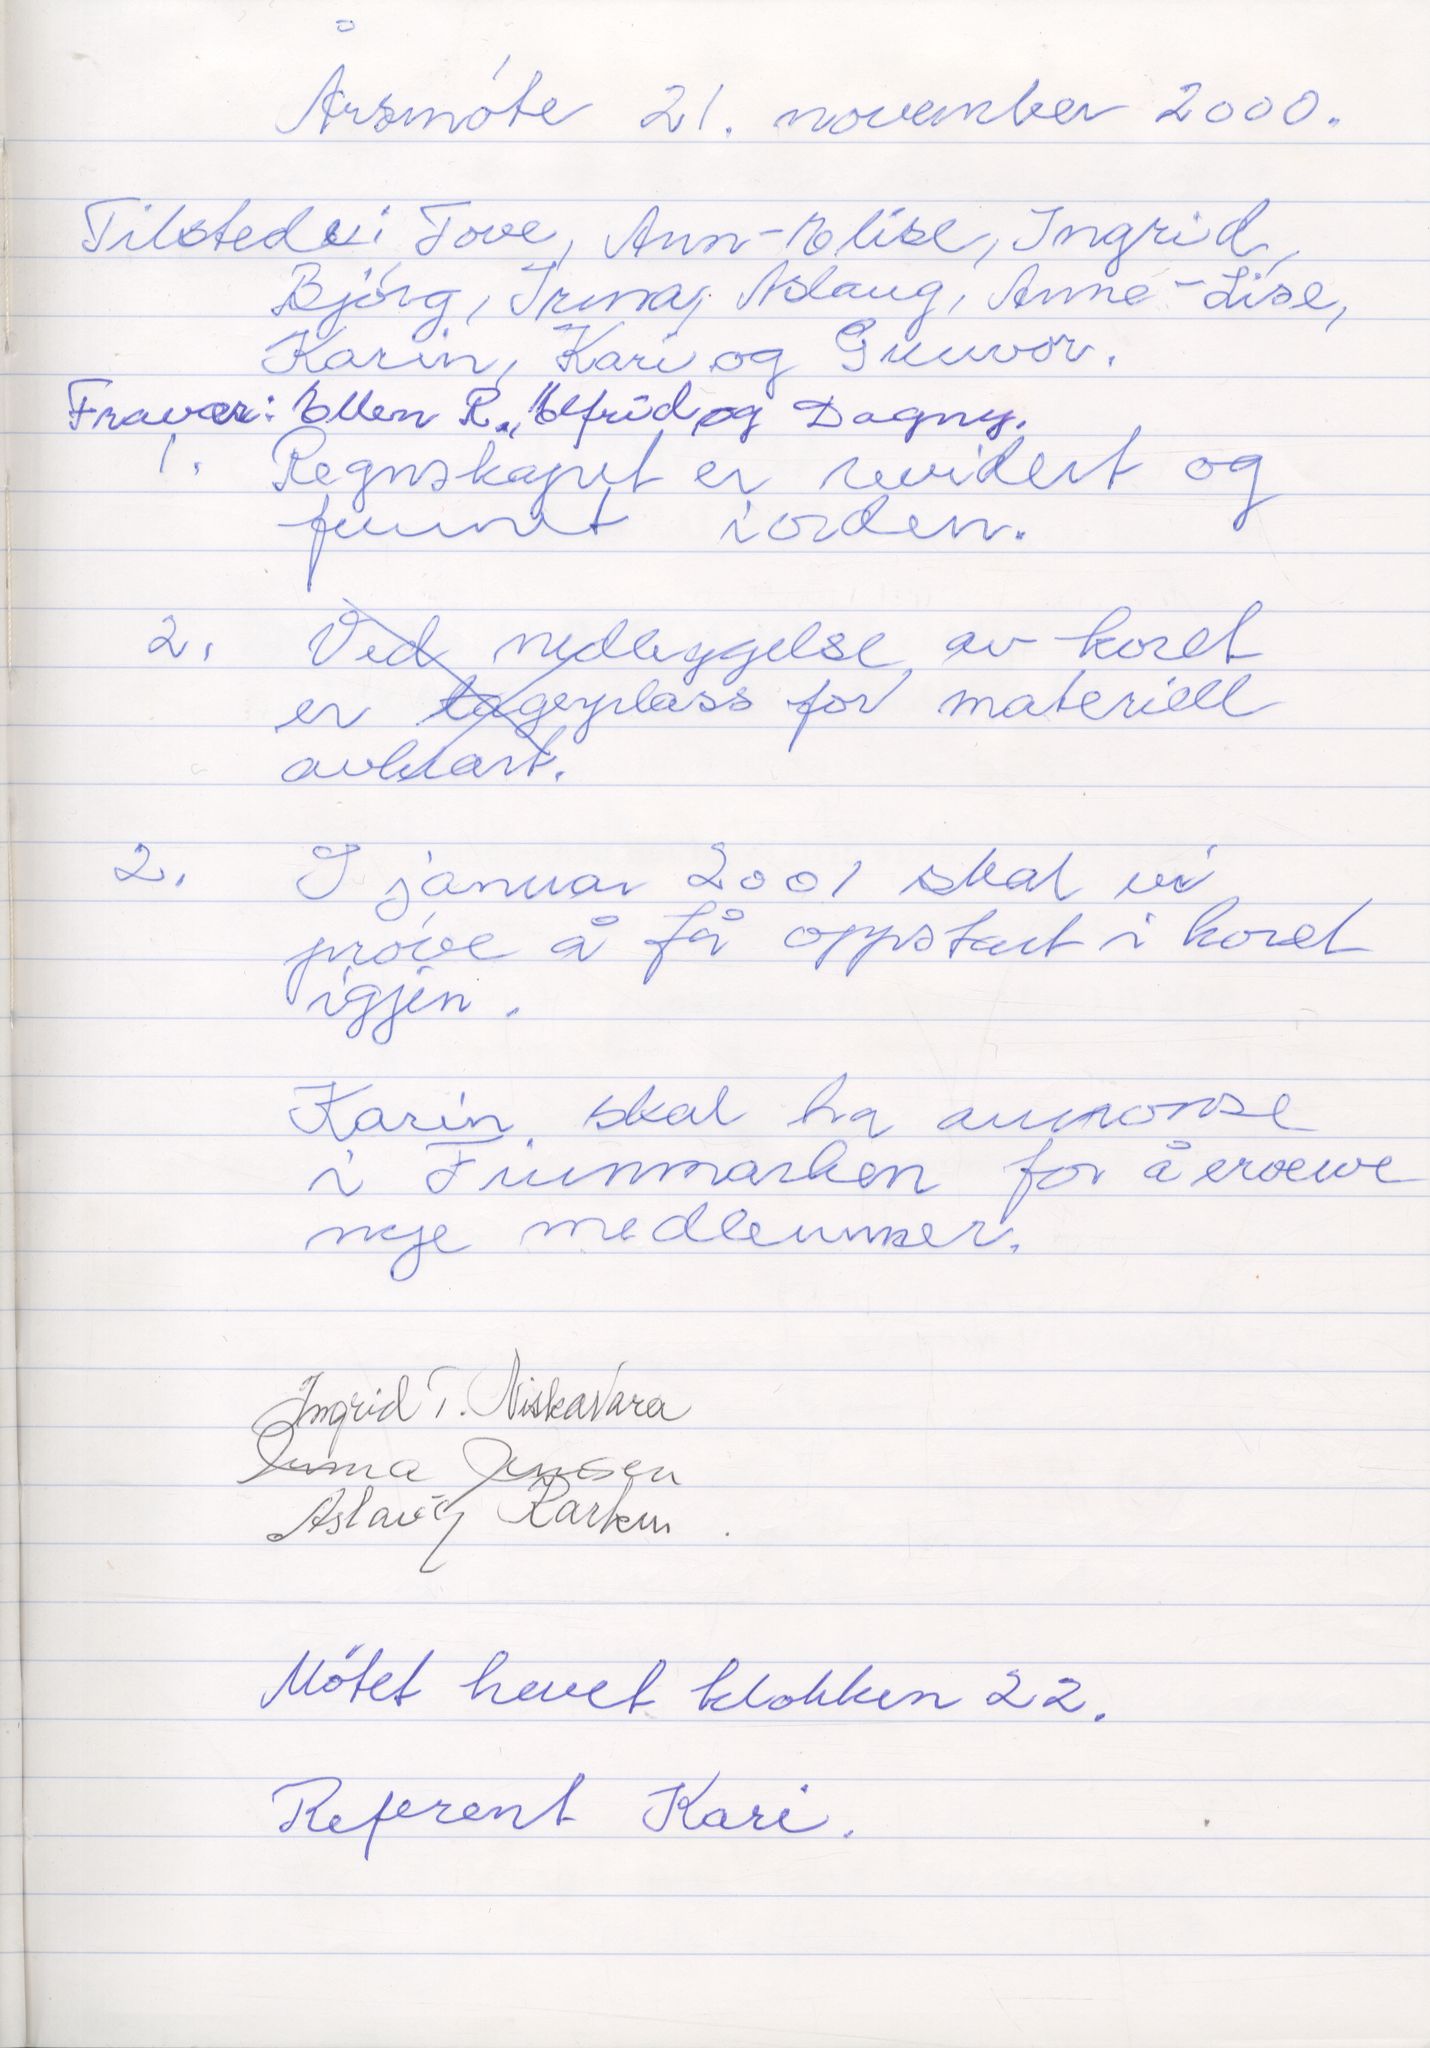 Årsmöte 21. november 2000.
Tilsted: Tove, Ann-Elise, Ingrid,
Bjórg, Irma, Aslaug, Anne-Lise,
Karin, Kari og Gunvor.
Fravær: Ellen R., Elfrid og Dagny.
1. Regnskapet er revidert og
funnet i orden.
2. Ved nedleggelse av koret
er lagerplass for materiell
avklart.
2. I januar 2001 skal vi
próve å få oppstart i koret
igjen.
Karin skal ha annonse
i Finnmarken for å erverve
nye medlemmer.
Ingrid T. Niskavara
Irma Jensen
Aslaug
Mótet hevet klokken 22.
Referent Kari.